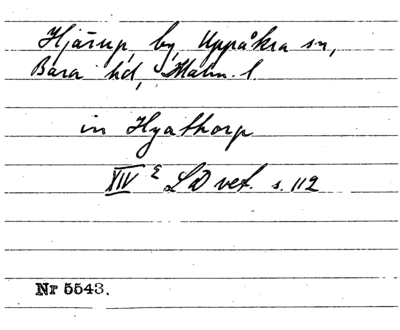 Hjärup, by, Uppåkra sn,
Bara hd, Malm. l.
in Hyathorp
XIV ε LD vet. s. 112
Nr 5543.